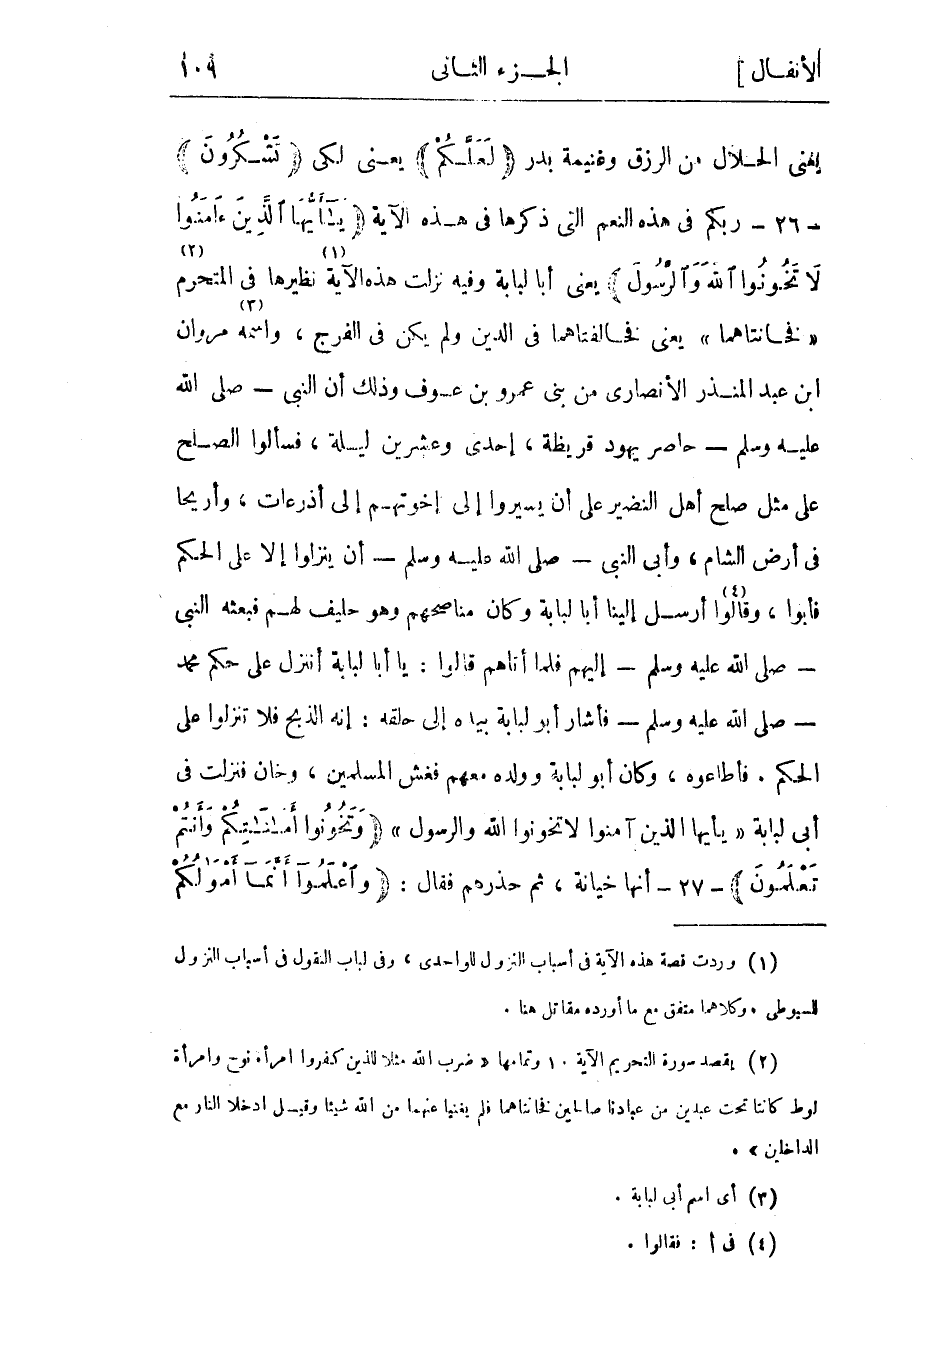 الأنفال ] الجزء الثانى ١٠٩
يعنى الحلال من الرزق وغنيمة بدر ﴿ لَعَلَّكُمْ ﴾ يعنى لكى ﴿ تَشْكُرُونَ ﴾
ـ ٢٦ ـ ربكم فى هذه النعم التى ذكرها فى هذه الآية ﴿ يَـٰٓأَيُّهَا ٱلَّذِينَ ءَامَنُوا
لَا تَخُونُوا ٱللَّهَ وَٱلرَّسُولَ ﴾ يعنى أبا لبابة وفيه نزلت هذه الآية (١) نظيرها فى المتحرم (٢)
« فخانتاهما » يعنى فخالفتاهما فى الدين ولم يكن فى الفرج ، واسمه (٣) مروان
ابن عبد المنذر الأنصارى من بنى عمرو بن عوف وذلك أن النبى — صلى الله
عليه وسلم — حاصر يهود قريظة ، إحدى وعشرين ليلة ، فسألوا الصلح
على مثل صلح أهل النضير على أن يسيروا إلى إخوتهم إلى أذرعات ، وأريحا
فى أرض الشام ، وأبى النبى — صلى الله عليه وسلم — أن ينزلوا إلا على الحكم
فأبوا ، وقالوا (٤) أرسل إلينا أبا لبابة وكان مناصحهم وهو حليف لهم فبعثه النبى
— صلى الله عليه وسلم — إليهم فلما أتاهم قالوا : يا أبا لبابة أننزل على حكم محمد
— صلى الله عليه وسلم — فأشار أبو لبابة بيده إلى حلقه : إنه الذبح فلا تنزلوا على
الحكم . فأطاعوه ، وكان أبو لبابة وولده معهم فغش المسلمين ، وخان فنزلت فى
أبى لبابة « يأيها الذين آمنوا لا تخونوا الله والرسول » ﴿ وَتَخُونُوا أَمَـٰنَـٰتِكُمْ وَأَنتُمْ
تَعْلَمُونَ ﴾ ـ ٢٧ ـ أنها خيانة ، ثم حذرهم فقال : ﴿ وَٱعْلَمُوٓا أَنَّمَـآ أَمْوَٰلُكُمْ
(١) وردت قصة هذه الآية فى أسباب النزول للواحدى ، وفى لباب النقول فى أسباب النزول
للسيوطى . وكلاهما متفق مع ما أورده مقاتل هنا .
(٢) يقصد سورة التحريم الآية ١٠ وتمامها « ضرب الله مثلا للذين كفروا امرأة نوح وامرأة
لوط كانتا تحت عبدين من عبادنا صالحين فخانتاهما فلم يغنيا عنهما من الله شيئا وقيل ادخلا النار مع
الداخلين » .
(٣) أى اسم أبى لبابة .
(٤) فى أ : فقالوا .